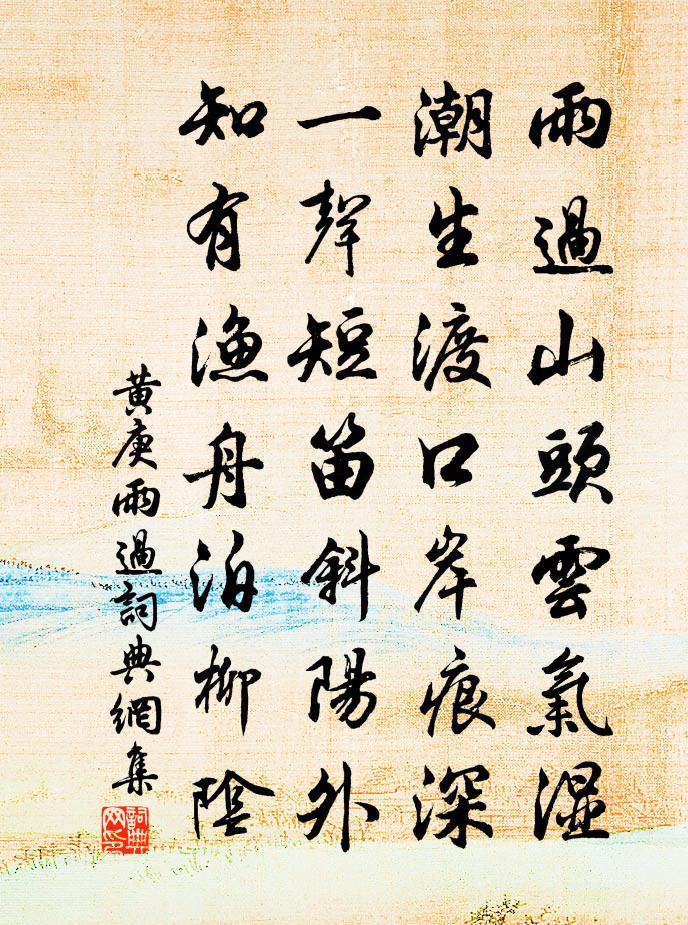 雨過山頭雲氣湿
潮生渡口岸痕深
一聲短笛斜陽外
知有漁舟泊柳陰
黃庚雨過詞典網集
詞典网印